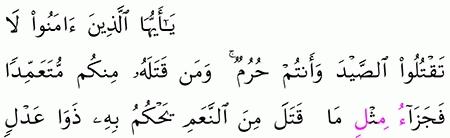 يَـٰٓأَيُّهَا ٱلَّذِينَ ءَامَنُوا۟ لَا
تَقْتُلُوا۟ ٱلصَّيْدَ وَأَنتُمْ حُرُمٌ ۚ وَمَن قَتَلَهُۥ مِنكُم مُّتَعَمِّدًا
فَجَزَآءُ مِثْلِ مَا قَتَلَ مِنَ ٱلنَّعَمِ يَحْكُمُ بِهِۦ ذَوَا عَدْلٍ